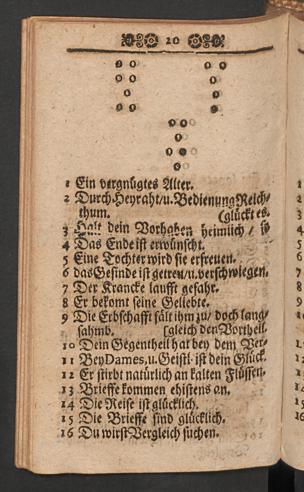 20
1 Ein vergnügtes Alter.
2 Durch Heyraht/u. Bedienung Reich-
thum. (glückt es.
3 Halt dein Vorhaben heimlich / so
4 Das Ende ist erwünscht.
5 Eine Tochter wird sie erfreuen.
6 das Gesinde ist getreu/u. verschwiegen.
7 Der Krancke laufft gefahr.
8 Er bekomt seine Geliebte.
9 Die Erbschafft fält ihm zu/ doch lang-
sahmb. [gleich den Vortheil.
10 Dein Gegentheil hat bey dem Ver-
11 Bey Dames, u. Geistl. ist dein Glück.
12 Er stirbt natürlich an kalten Flüssen.
13 Brieffe kommen ehistens an.
14 Die Reise ist glücklich.
15 Die Brieffe sind glücklich.
16 Du wirst Vergleich suchen.